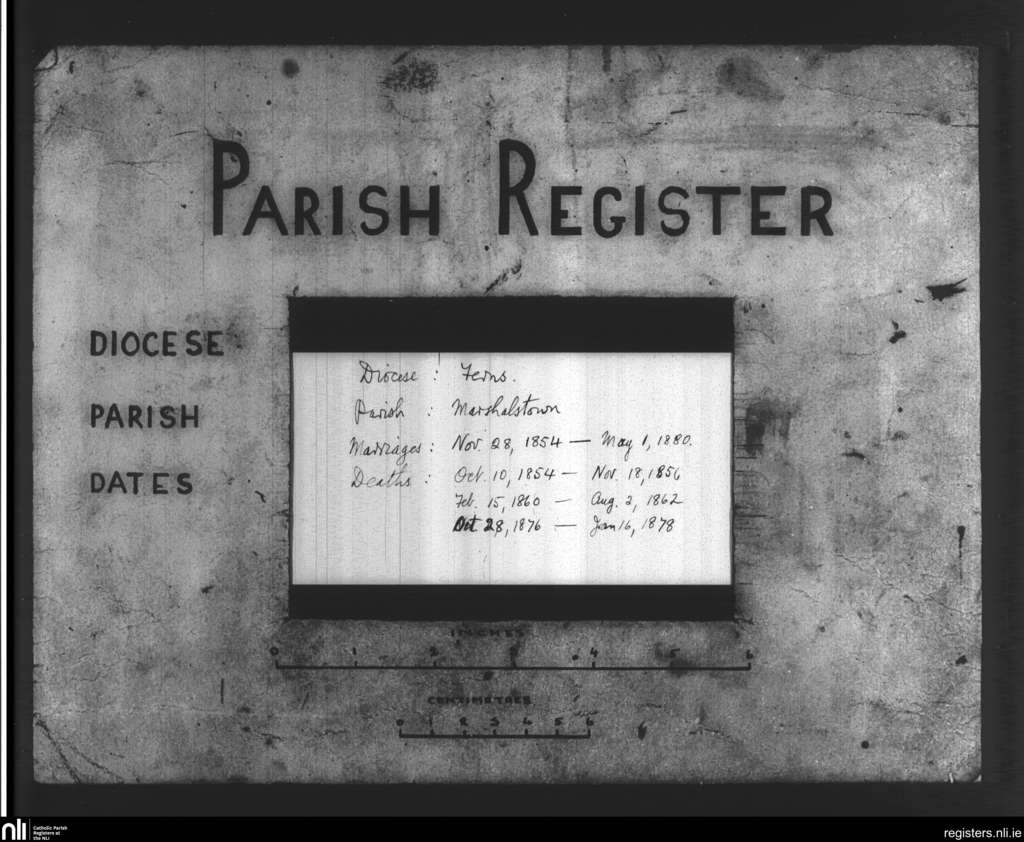 PARISH REGISTER
DIOCESE
PARISH
DATES
Diocese : Ferns.
Parish : Marshalstown
Marriages : Nov. 28, 1854 — May 1, 1880.
Deaths : Oct. 10, 1854 — Nov. 18, 1856
Feb. 15, 1860 — Aug. 2, 1862
Oct 28, 1876 — Jan 16, 1878
INCHES
0 1 2 3 4 5 6
CENTIMETRES
0 1 2 3 4 5 6
nli
Catholic Parish
Registers at
the NLI
registers.nli.ie